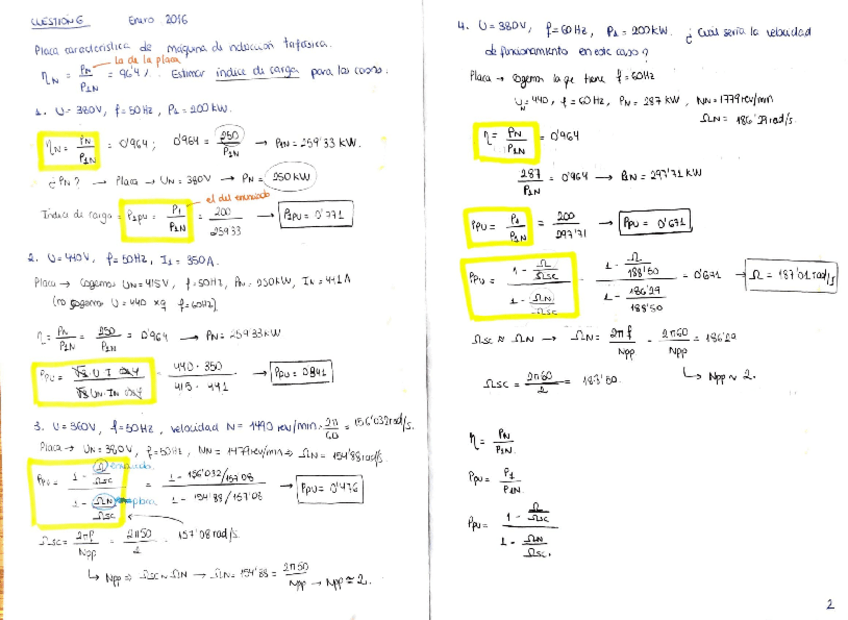 CUESTIÓN 6 Enero 2016
Placa característica de máquina de inducción trifásica.
la de la placa
ηN = PN / P1N = 96'4%. Estimar índice de carga para los casos:
1. U = 380V, f = 50Hz, P1 = 200 kW.
ηN = PN / P1N = 0'964; 0'964 = 250 / P1N → P1N = 259'33 kW.
¿PN? → Placa → UN = 380V → PN = 250 kW
el del enunciado
Índice de carga = P1pu = P1 / P1N = 200 / 259'33 → P1PU = 0'771
2. U = 440V, f = 50Hz, I1 = 350A.
Placa → Cogemos UN = 415V, f = 50Hz, PN = 250kW, IN = 441A
(no cogemos U = 440 xq f = 60Hz)
η = PN / P1N = 250 / P1N = 0'964 → PN = 259'33kW
PPU = √3 · U · I cos φ / √3 UN · IN cos φ = 440 · 350 / 415 · 441 → PPU = 0'841
3. U = 360V, f = 50Hz, velocidad N = 1490 rev/min · 2π / 60 = 156'032 rad/s.
Placa → UN = 380V, f = 50Hz, NN = 1479 rev/min → ΩN = 154'88 rad/s.
enunciado
PPU = 1 - Ω / ΩSC / 1 - ΩN / ΩSC = 1 - 156'032/157'08 / 1 - 154'88/157'08 → PPU = 0'476
placa
ΩSC = 2πf / Npp = 2π50 / 2 = 157'08 rad/s.
↳ Npp ⇒ ΩSC ≈ ΩN → ΩN = 154'88 = 2π50 / Npp → Npp ≈ 2.
4. U = 380V, f = 60Hz, P1 = 200kW. ¿Cuál sería la velocidad
de funcionamiento en este caso?
Placa → Cogemos la que tiene f = 60Hz
UN = 440, f = 60Hz, PN = 287 kW, NN = 1779 rev/min
ΩN = 186'29 rad/s.
η = PN / P1N = 0'964
287 / P1N = 0'964 → P1N = 297'71 kW
PPU = P1 / P1N = 200 / 297'71 → PPU = 0'671
PPU = 1 - Ω / ΩSC / 1 - ΩN / ΩSC = 1 - Ω / 188'50 / 1 - 186'29 / 188'50 = 0'671 → Ω = 187'01 rad/s
ΩSC ≈ ΩN → ΩN = 2πf / Npp = 2π60 / Npp = 186'29
↳ Npp ≈ 2.
ΩSC = 2π60 / 2 = 188'50.
η = PN / P1N.
PPU = P1 / P1N.
PPU = 1 - Ω / ΩSC / 1 - ΩN / ΩSC.
2